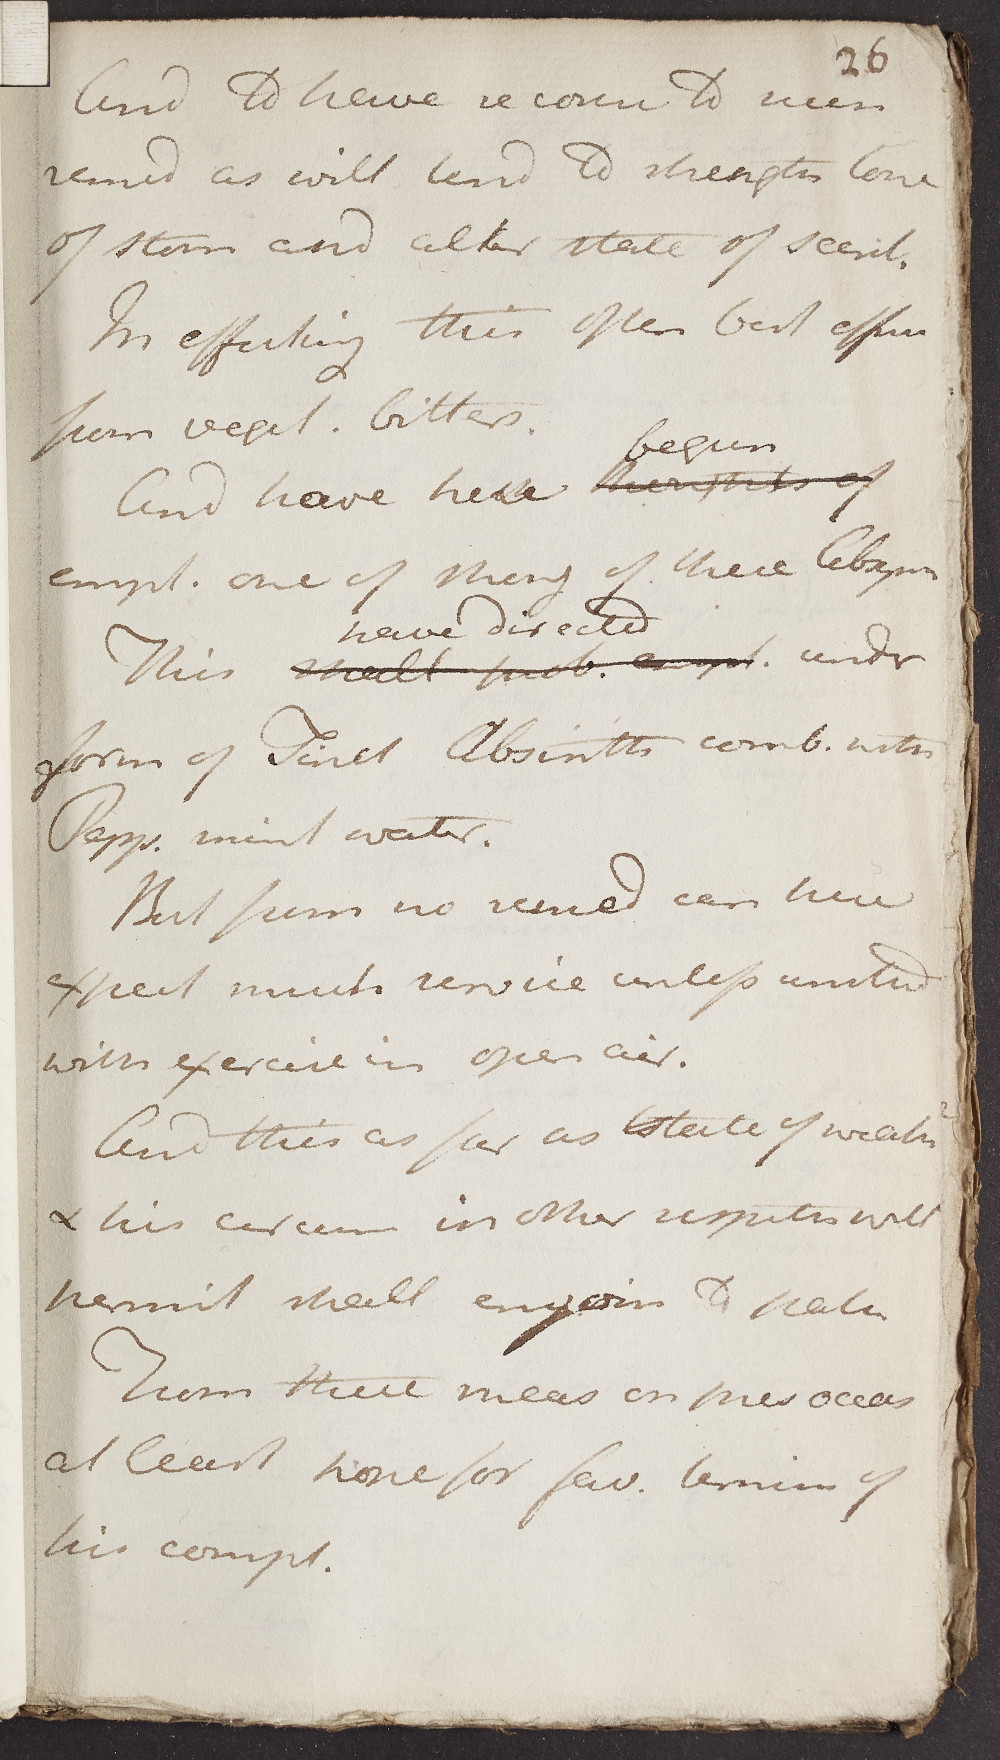 26
And to have recour to such
remed as will tend to strength tone
of stom and alter state of secret.
In effecting this often best effec
from veget. bitters.
begun
And have here thoughts of
empl. one of strong of these Absyn
have directed
This shall prob. empl. under
form of Tinct Absinth comb. with
Pepp. mint water.
But from no remed can here
expect much service unless united
with exercise in open air.
And this as far as state of weath
& his circum in other respects will
permit shall enjoin to patn
From these meas on pres occas
at least hope for fav. termin of
his compt.